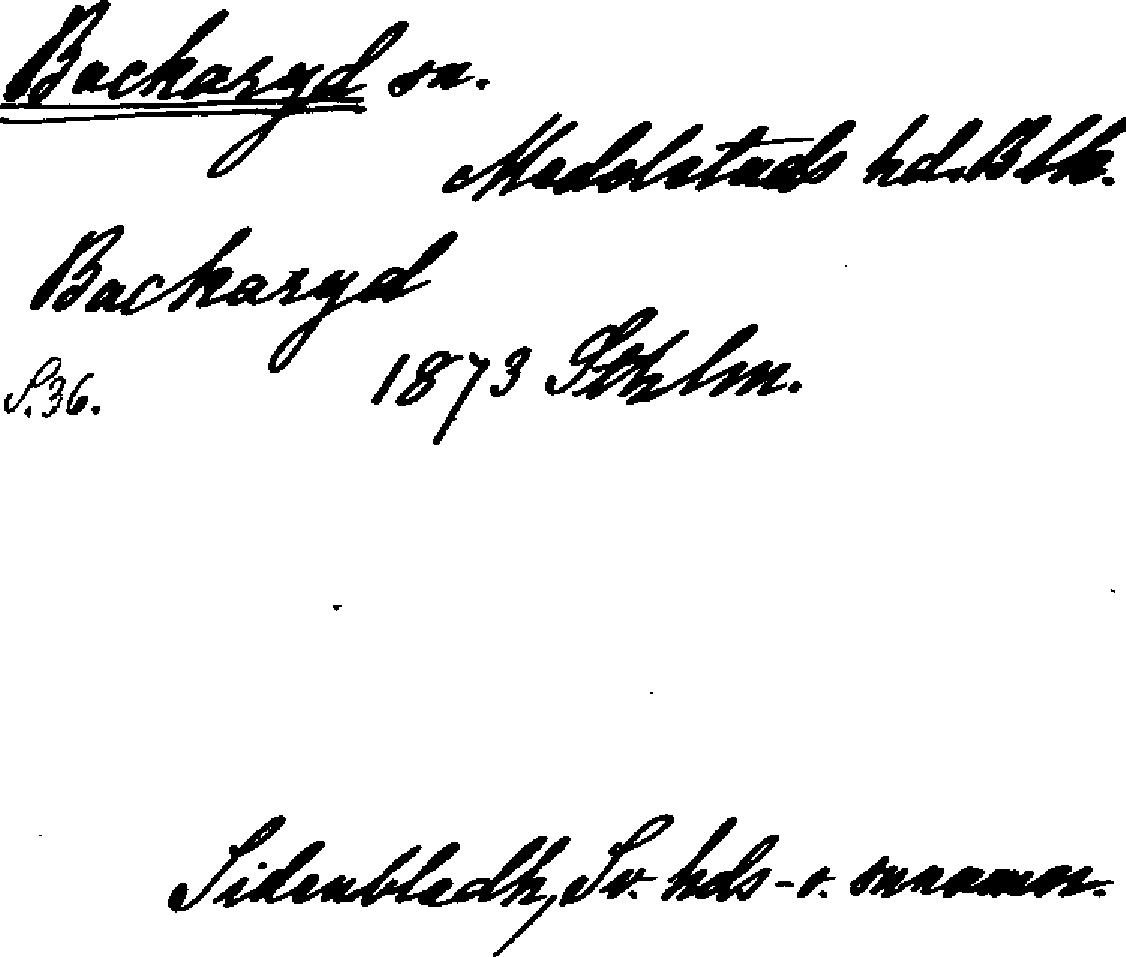 Backaryd sn.
Medelstads hd. Blk.
Backaryd
S. 36. 1873 Sthlm.
Sidenbladh, Sv. hds- o. snnamn.